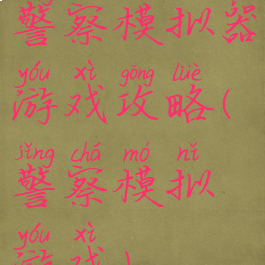 警察模拟器
yóu xì gōng lüè
游戏攻略(
jǐng chá mó nǐ
警察模拟
yóu xì
游戏)